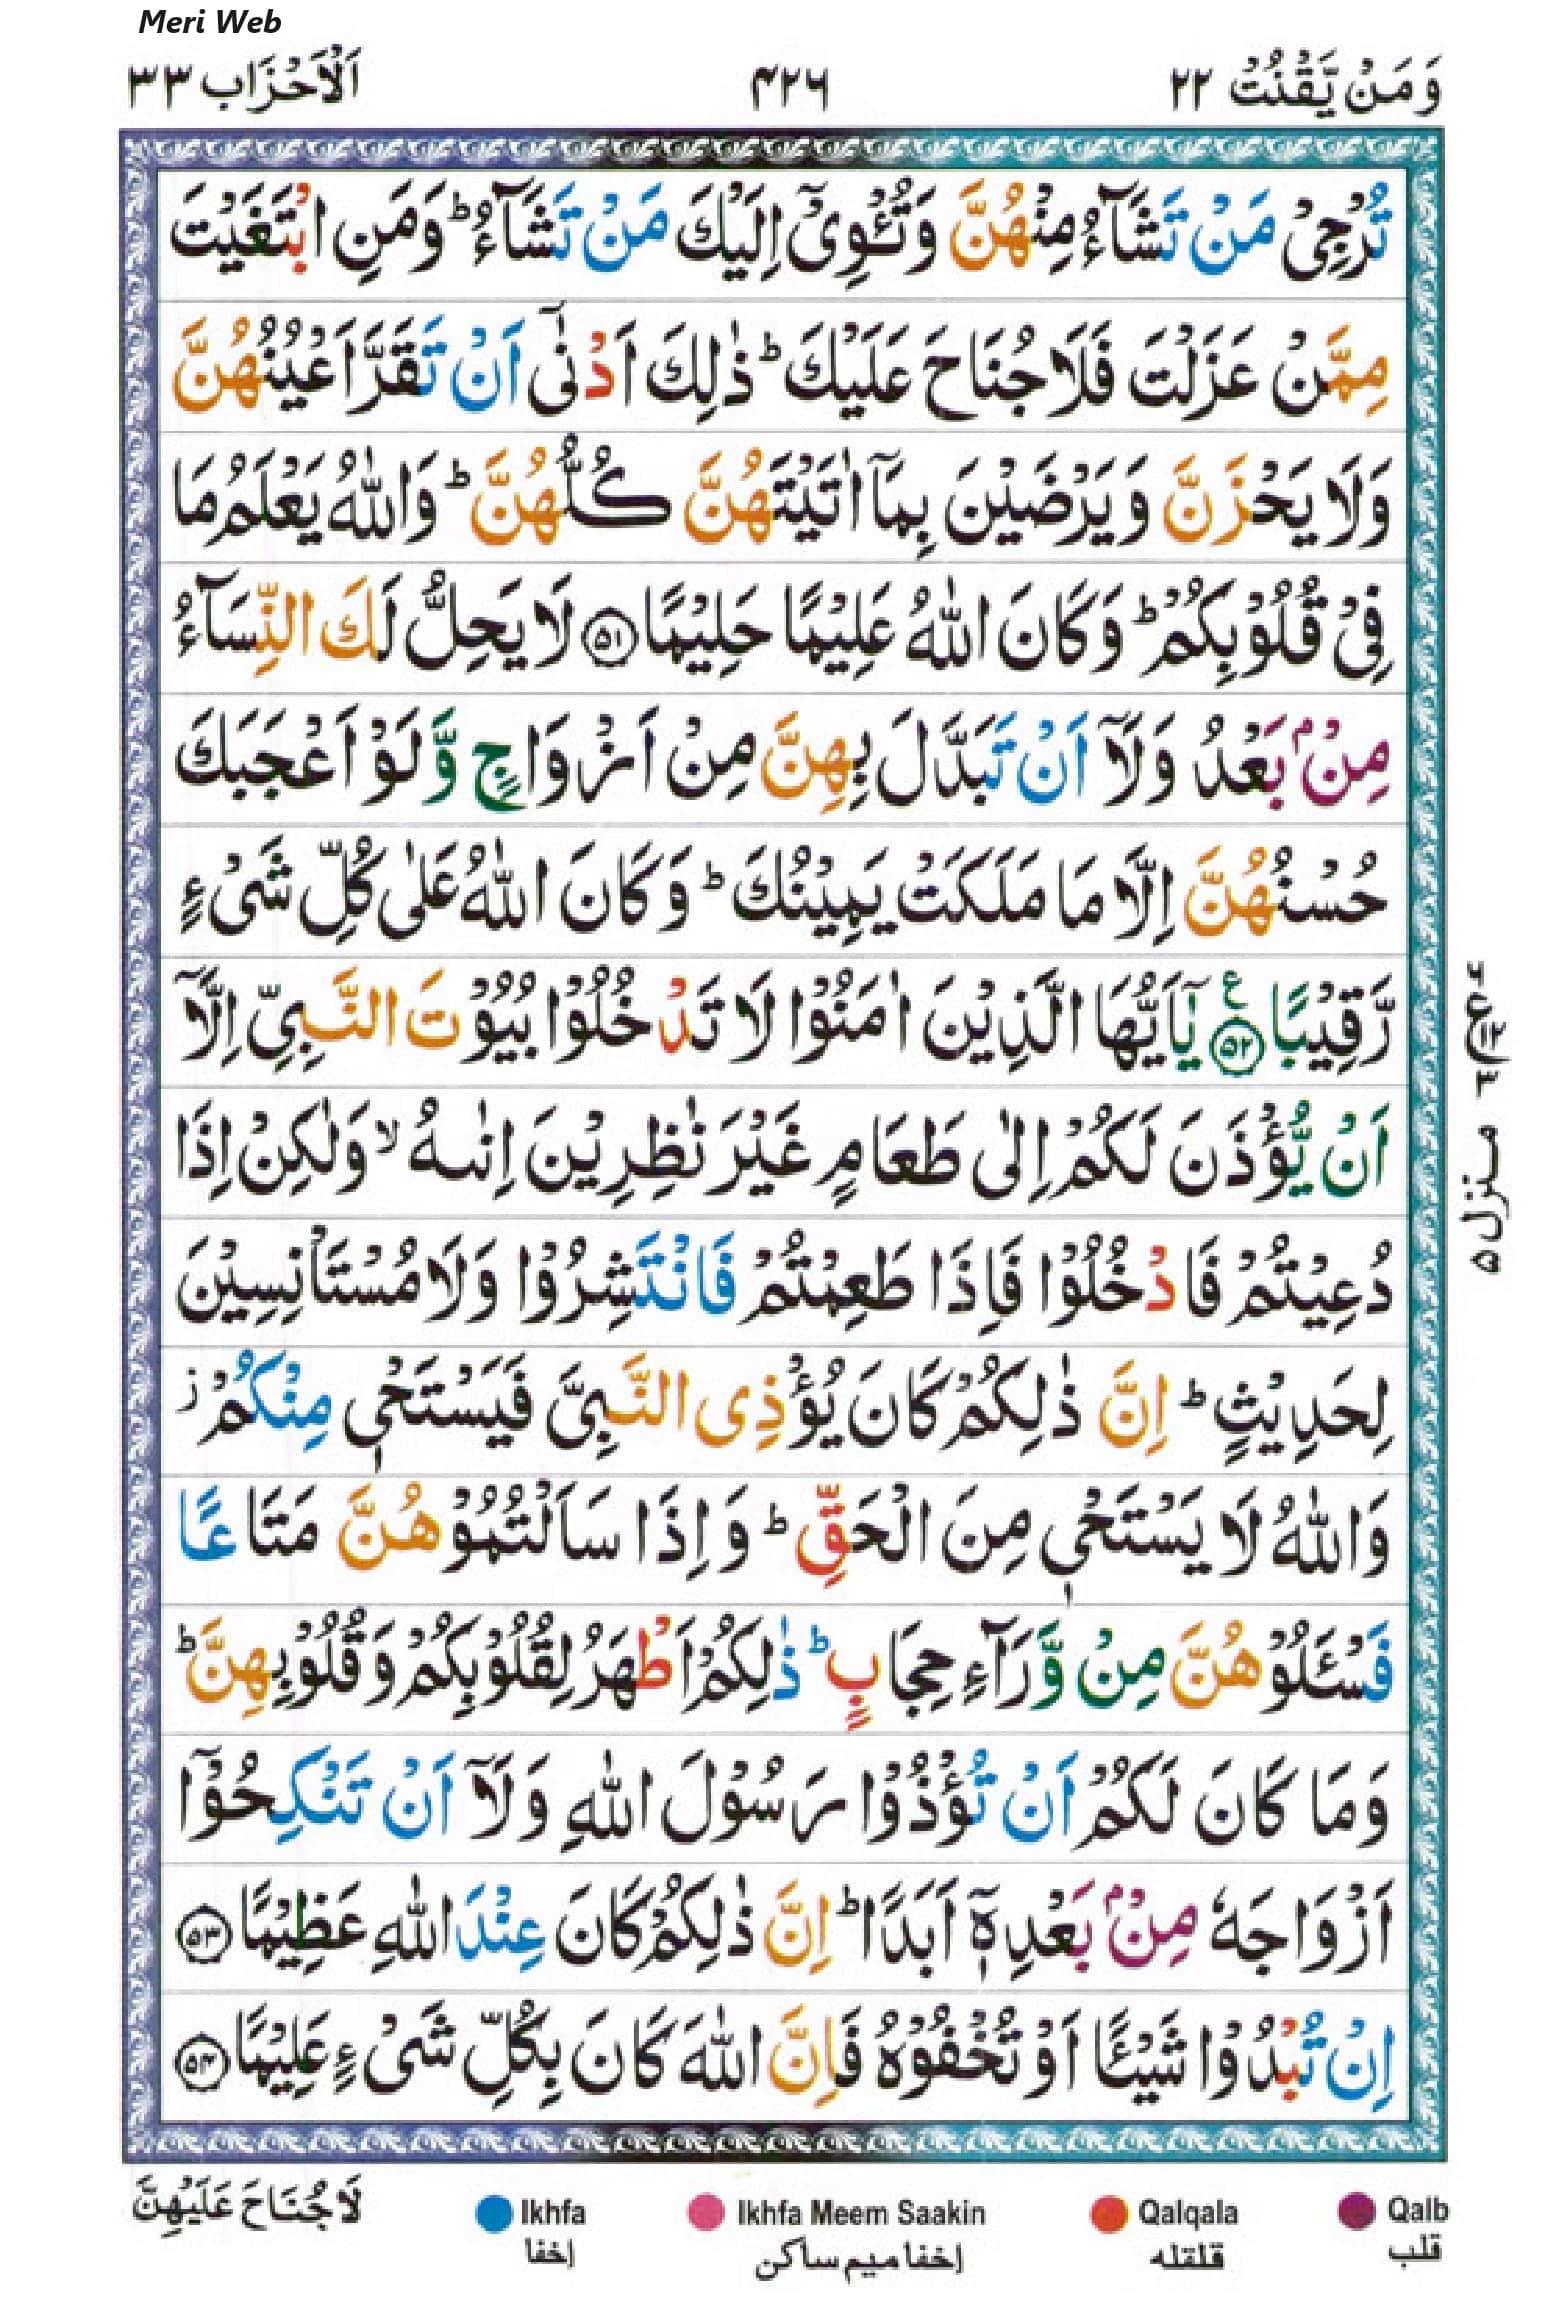 Meri Web
وَمَنْ يَّقْنُتْ ٢٢
٤٢٦
اَلْاَحْزَاب ٣٣
تُرْجِیْ مَنْ تَشَآءُ مِنْهُنَّ وَتُـْٔوِیْۤ اِلَیْكَ مَنْ تَشَآءُ ؕ وَمَنِ ابْتَغَیْتَ
مِمَّنْ عَزَلْتَ فَلَا جُنَاحَ عَلَیْكَ ؕ ذٰلِكَ اَدْنٰۤی اَنْ تَقَرَّ اَعْیُنُهُنَّ
وَلَا یَحْزَنَّ وَیَرْضَیْنَ بِمَاۤ اٰتَیْتَهُنَّ كُلُّهُنَّ ؕ وَاللّٰهُ یَعْلَمُ مَا
فِیْ قُلُوْبِكُمْ ؕ وَكَانَ اللّٰهُ عَلِیْمًا حَلِیْمًا ۝٥١ لَا یَحِلُّ لَكَ النِّسَآءُ
مِنْۢ بَعْدُ وَلَاۤ اَنْ تَبَدَّلَ بِهِنَّ مِنْ اَزْوَاجٍ وَّلَوْ اَعْجَبَكَ
حُسْنُهُنَّ اِلَّا مَا مَلَكَتْ یَمِیْنُكَ ؕ وَكَانَ اللّٰهُ عَلٰی كُلِّ شَیْءٍ
رَّقِیْبًا ۝٥٢ ع یٰۤاَیُّهَا الَّذِیْنَ اٰمَنُوْا لَا تَدْخُلُوْا بُیُوْتَ النَّبِیِّ اِلَّاۤ
اَنْ یُّؤْذَنَ لَكُمْ اِلٰی طَعَامٍ غَیْرَ نٰظِرِیْنَ اِنٰىهُ ۙ وَلٰكِنْ اِذَا
دُعِیْتُمْ فَادْخُلُوْا فَاِذَا طَعِمْتُمْ فَانْتَشِرُوْا وَلَا مُسْتَاْنِسِیْنَ
لِحَدِیْثٍ ؕ اِنَّ ذٰلِكُمْ كَانَ یُؤْذِی النَّبِیَّ فَیَسْتَحْیٖ مِنْكُمْ ؗ
وَاللّٰهُ لَا یَسْتَحْیٖ مِنَ الْحَقِّ ؕ وَاِذَا سَاَلْتُمُوْهُنَّ مَتَاعًا
فَسْـَٔلُوْهُنَّ مِنْ وَّرَآءِ حِجَابٍ ؕ ذٰلِكُمْ اَطْهَرُ لِقُلُوْبِكُمْ وَقُلُوْبِهِنَّ ؕ
وَمَا كَانَ لَكُمْ اَنْ تُؤْذُوْا رَسُوْلَ اللّٰهِ وَلَاۤ اَنْ تَنْكِحُوْۤا
اَزْوَاجَهٗ مِنْۢ بَعْدِهٖۤ اَبَدًا ؕ اِنَّ ذٰلِكُمْ كَانَ عِنْدَ اللّٰهِ عَظِیْمًا ۝٥٣
اِنْ تُبْدُوْا شَیْـًٔا اَوْ تُخْفُوْهُ فَاِنَّ اللّٰهَ كَانَ بِكُلِّ شَیْءٍ عَلِیْمًا ۝٥٤
منزل ٥
لَا جُنَاحَ عَلَیْهِنَّ
Ikhfa
Ikhfa Meem Saakin
Qalqala
Qalb
إخفا
إخفا میم ساكن
قلقله
قلب